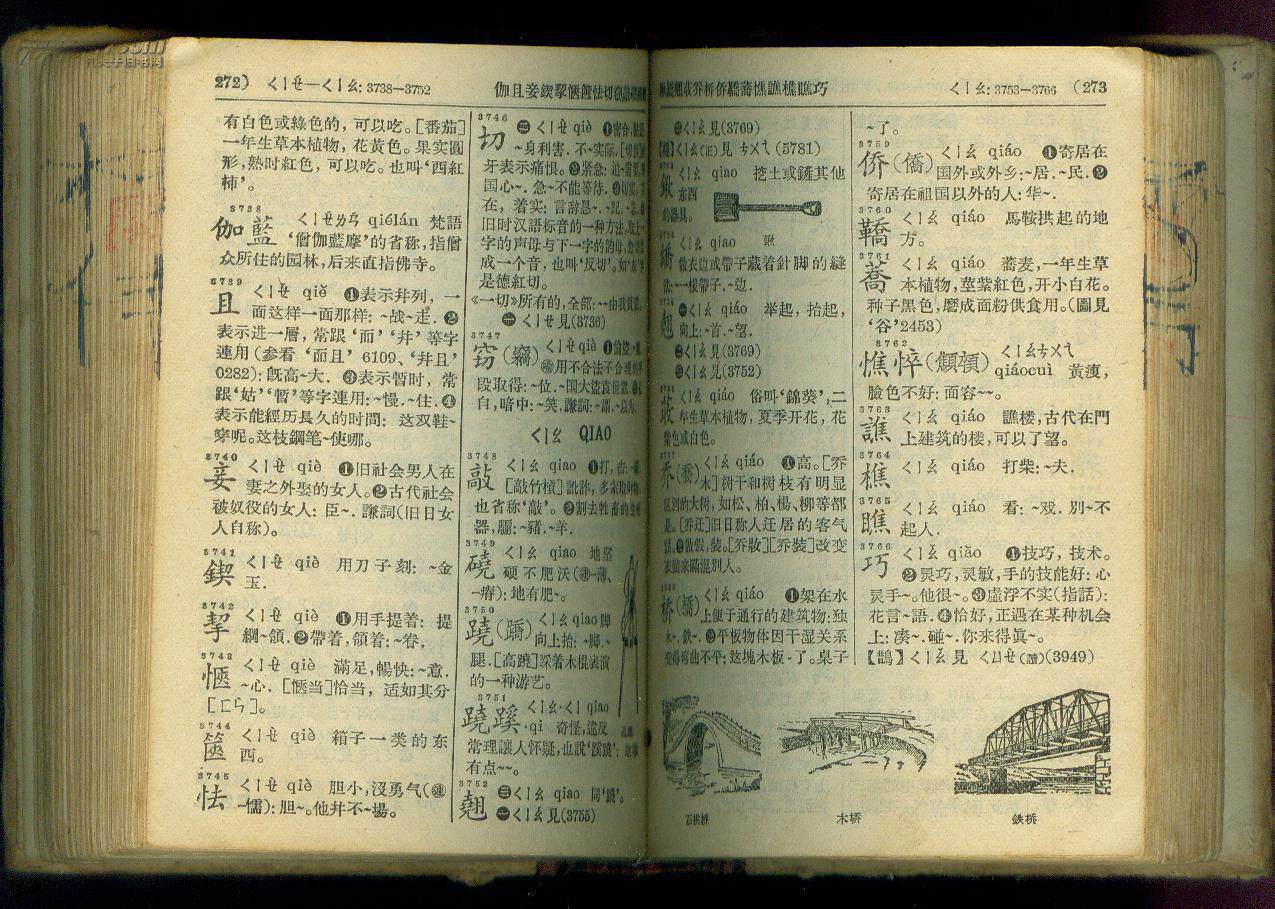 272) ㄑㄧㄝ—ㄑㄧㄠ: 3738—3752
有白色或綠色的, 可以吃。[番茄]
一年生草本植物, 花黃色。果实圓
形, 熟时紅色, 可以吃。也叫‘西紅
柿’。
3738
伽藍 ㄑㄧㄝㄌㄢ qiélán 梵語
‘僧伽藍摩’的省称, 指僧
众所住的园林, 后来直指佛寺。
3739
且 ㄑㄧㄝ qiě ❶表示幷列, 一
面这样一面那样: ~战~走. ❷
表示进一層, 常跟‘而’‘幷’等字
連用(参看‘而且’6109、‘幷且’
0282): 旣高~大. ❸表示暂时, 常
跟‘姑’‘暫’等字連用: ~慢. ~住. ❹
表示能經历長久的时間: 这双鞋~
穿呢。这枝鋼笔~使哪。
3740
妾 ㄑㄧㄝ qiè ❶旧社会男人在
妻之外娶的女人。❷古代社会
被奴役的女人: 臣~. 謙詞(旧日女
人自称)。
3741
鍥 ㄑㄧㄝ qiè 用刀子刻: ~金
玉.
3742
挈 ㄑㄧㄝ qiè ❶用手提着: 提
綱~領. ❷帶着, 領着: ~眷.
3743
愜 ㄑㄧㄝ qiè 滿足, 暢快: ~意.
~心. [愜当]恰当, 适如其分
[ㄈㄣ]。
3744
篋 ㄑㄧㄝ qiè 箱子一类的东
西。
3745
怯 ㄑㄧㄝ qiè 胆小, 沒勇气(連
-儒): 胆~。他幷不~場。
3746
切 ㄑㄧㄝ qiè ❶密合,
~身利害. 不~实际.
牙表示痛恨。❷紧急:
国心~. 急~不能等待.
在, 着实: 言辞恳~. ~記.
旧时汉語标音的一种方法,
字的声母与下一字的韵母,
成一个音, 也叫‘反切’。如
是德紅切。
《一切》所有的, 全部:
㊀ㄑㄧㄝ見(3736)
3747
窃(竊) ㄑㄧㄝ qiè
用不合法不合理的手
段取得: ~位. ~国大盜
自, 暗中: ~笑. 謙詞:
ㄑㄧㄠ QIAO
3748
敲 ㄑㄧㄠ qiao ❶打, 击:
[敲竹槓]訛詐,
也省称‘敲’。❷割去牲畜的
器, 騸: ~豬. ~羊.
3749
磽 ㄑㄧㄠ qiao 地坚
硬不肥沃(連-薄、
-瘠): 地有肥~。
3750
蹺(蹻) ㄑㄧㄠ qiao 脚
向上抬: ~脚. ~
腿. [高蹺]踩着木棍表演
的一种游艺。
3751
蹺蹊 ㄑㄧㄠ·ㄑㄧ qiao
·qi 奇怪, 違反
常理讓人怀疑, 也說‘蹊蹺’:
有点~~。
3752
翹 ㊂ㄑㄧㄠ qiao 同‘蹺’。
㊀ㄑㄧㄠ見(3755)
ㄑㄧㄠ: 3753—3766 (273
㊁ㄑㄧㄠ見(3769)
ㄑㄧㄠ(正)見 ㄘㄨㄟ (5781)
ㄑㄧㄠ qiao 挖土或鏟其他
东西
的器具。
ㄑㄧㄠ qiao 鍬
做衣边或帶子藏着針脚的縫
法: 一根帶子. ~边.
㊀ㄑㄧㄠ qiáo 举起, 抬起,
向上: ~首. ~望.
㊁ㄑㄧㄠ見(3769)
㊂ㄑㄧㄠ見(3752)
ㄑㄧㄠ qiáo 俗叫‘錦葵’, 二
年生草本植物, 夏季开花, 花
紫色或白色。
乔(喬) ㄑㄧㄠ qiáo ❶高。[乔
木]树干和树枝有明显
区別的大树, 如松、柏、楊、柳等都
是。[乔迁]旧日称人迁居的客气
話。❷做假, 裝。[乔妝][乔裝]改变
衣裝來瞞混別人。
桥(橋) ㄑㄧㄠ qiáo ❶架在水
上便于通行的建筑物: 独
木~. 鉄~. ❷平板物体因干湿关系
变得弯曲不平: 这塊木板~了。桌子
~了。
3759
侨(僑) ㄑㄧㄠ qiáo ❶寄居在
国外或外乡: ~居. ~民. ❷
寄居在祖国以外的人: 华~.
3760
鞽 ㄑㄧㄠ qiáo 馬鞍拱起的地
方。
3761
蕎 ㄑㄧㄠ qiáo 蕎麦, 一年生草
本植物, 莖紫紅色, 开小白花。
种子黑色, 磨成面粉供食用。(圖見
‘谷’2453)
3762
憔悴(顦顇) ㄑㄧㄠㄘㄨㄟ
qiáocuì 黃瘦,
臉色不好: 面容~~。
3763
譙 ㄑㄧㄠ qiáo 譙楼, 古代在門
上建筑的楼, 可以了望。
3764
樵 ㄑㄧㄠ qiáo 打柴: ~夫.
3765
瞧 ㄑㄧㄠ qiáo 看: ~戏. 別~不
起人.
3766
巧 ㄑㄧㄠ qiǎo ❶技巧, 技术。
❷灵巧, 灵敏, 手的技能好: 心
灵手~。他很~。❸虛浮不实(指話):
花言~語. ❹恰好, 正遇在某种机会
上: 凑~. 碰~. 你来得眞~。
【鵲】ㄑㄧㄠ見 ㄑㄩㄝ (讀)(3949)
石拱桥
木桥
鉄桥